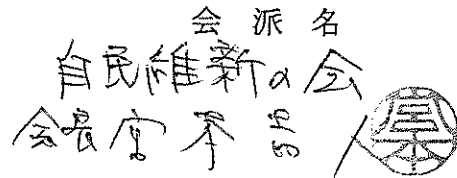 会派名
自民維新の会
会長 宮本 人
宮本